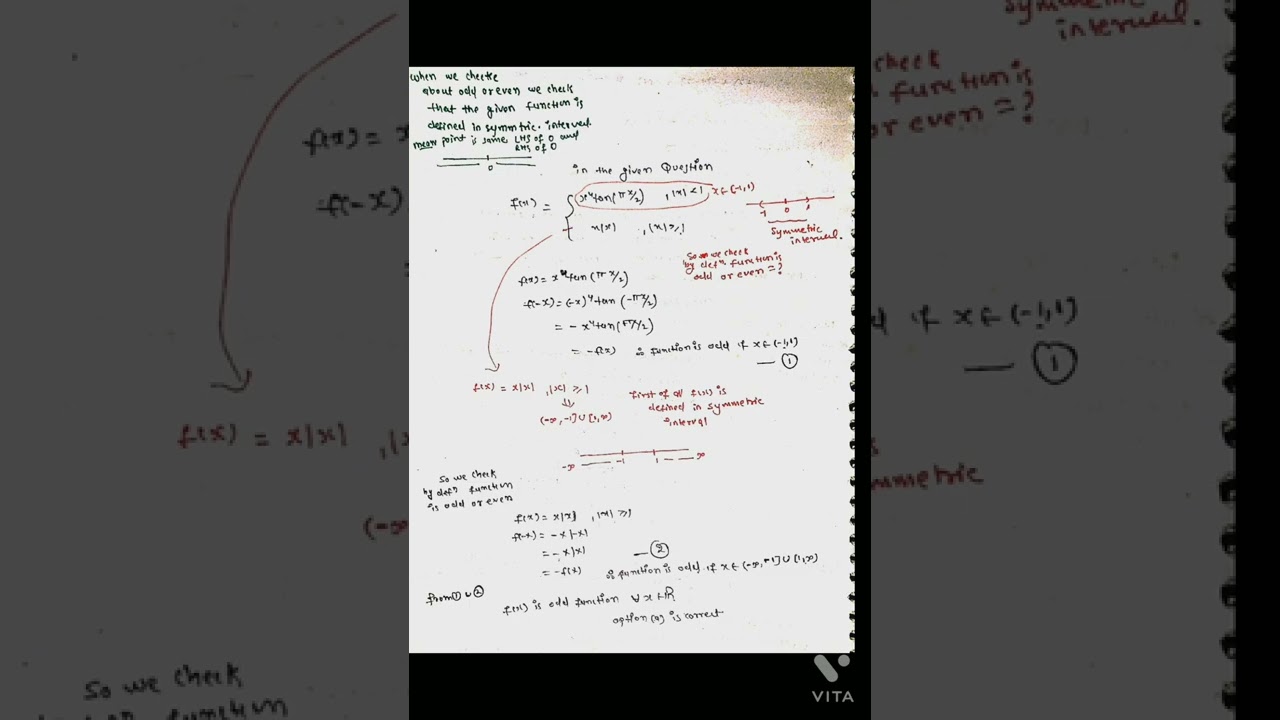 when we checke
about odd or even we check
that the given function is
defined in symmtric. interval.
mean point is same LHS of 0 and
RHS of 0
0
in the given Question
f(x) = { x⁴tan(πx/2) , |x| < 1 x∈(-1,1)
x|x| , |x| ≥ 1
-1 0 1
symmetric
interval.
so we check
by defⁿ function is
odd or even = ?
f(x) = x⁴tan(πx/2)
f(-x) = (-x)⁴tan(-πx/2)
= -x⁴tan(πx/2)
= -f(x) ∴ function is odd if x∈(-1,1)
— ①
f(x) = x|x| , |x| ≥ 1
(-∞,-1]∪[1,∞)
first of all f(x) is
defined in symmetric
interval
-∞ -1 1 ∞
So we check
by defⁿ function
is odd or even
f(x) = x|x| , |x| ≥ 1
f(-x) = -x|-x|
= -x|x| — ②
= -f(x) ∴ function is odd if x∈(-∞,-1]∪[1,∞)
from ① & ②
f(x) is odd function ∀ x∈R
option (a) is correct
VITA